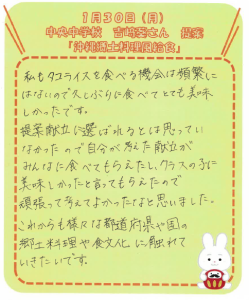 1月30日(月)
中央中学校 吉﨑葵さん 提案
「沖縄郷土料理風給食」
私もタコライスを食べる機会は頻繁に
はないので久しぶりに食べてとても美味
しかったです。
提案献立に選ばれるとは思ってい
なかったので自分が考えた献立が
みんなに食べてもらえたし、クラスの子に
美味しかったと言ってもらえたので
頑張って考えてよかったなと思いました。
これからも様々な都道府県や国の
郷土料理や食文化に触れて
いきたいです。